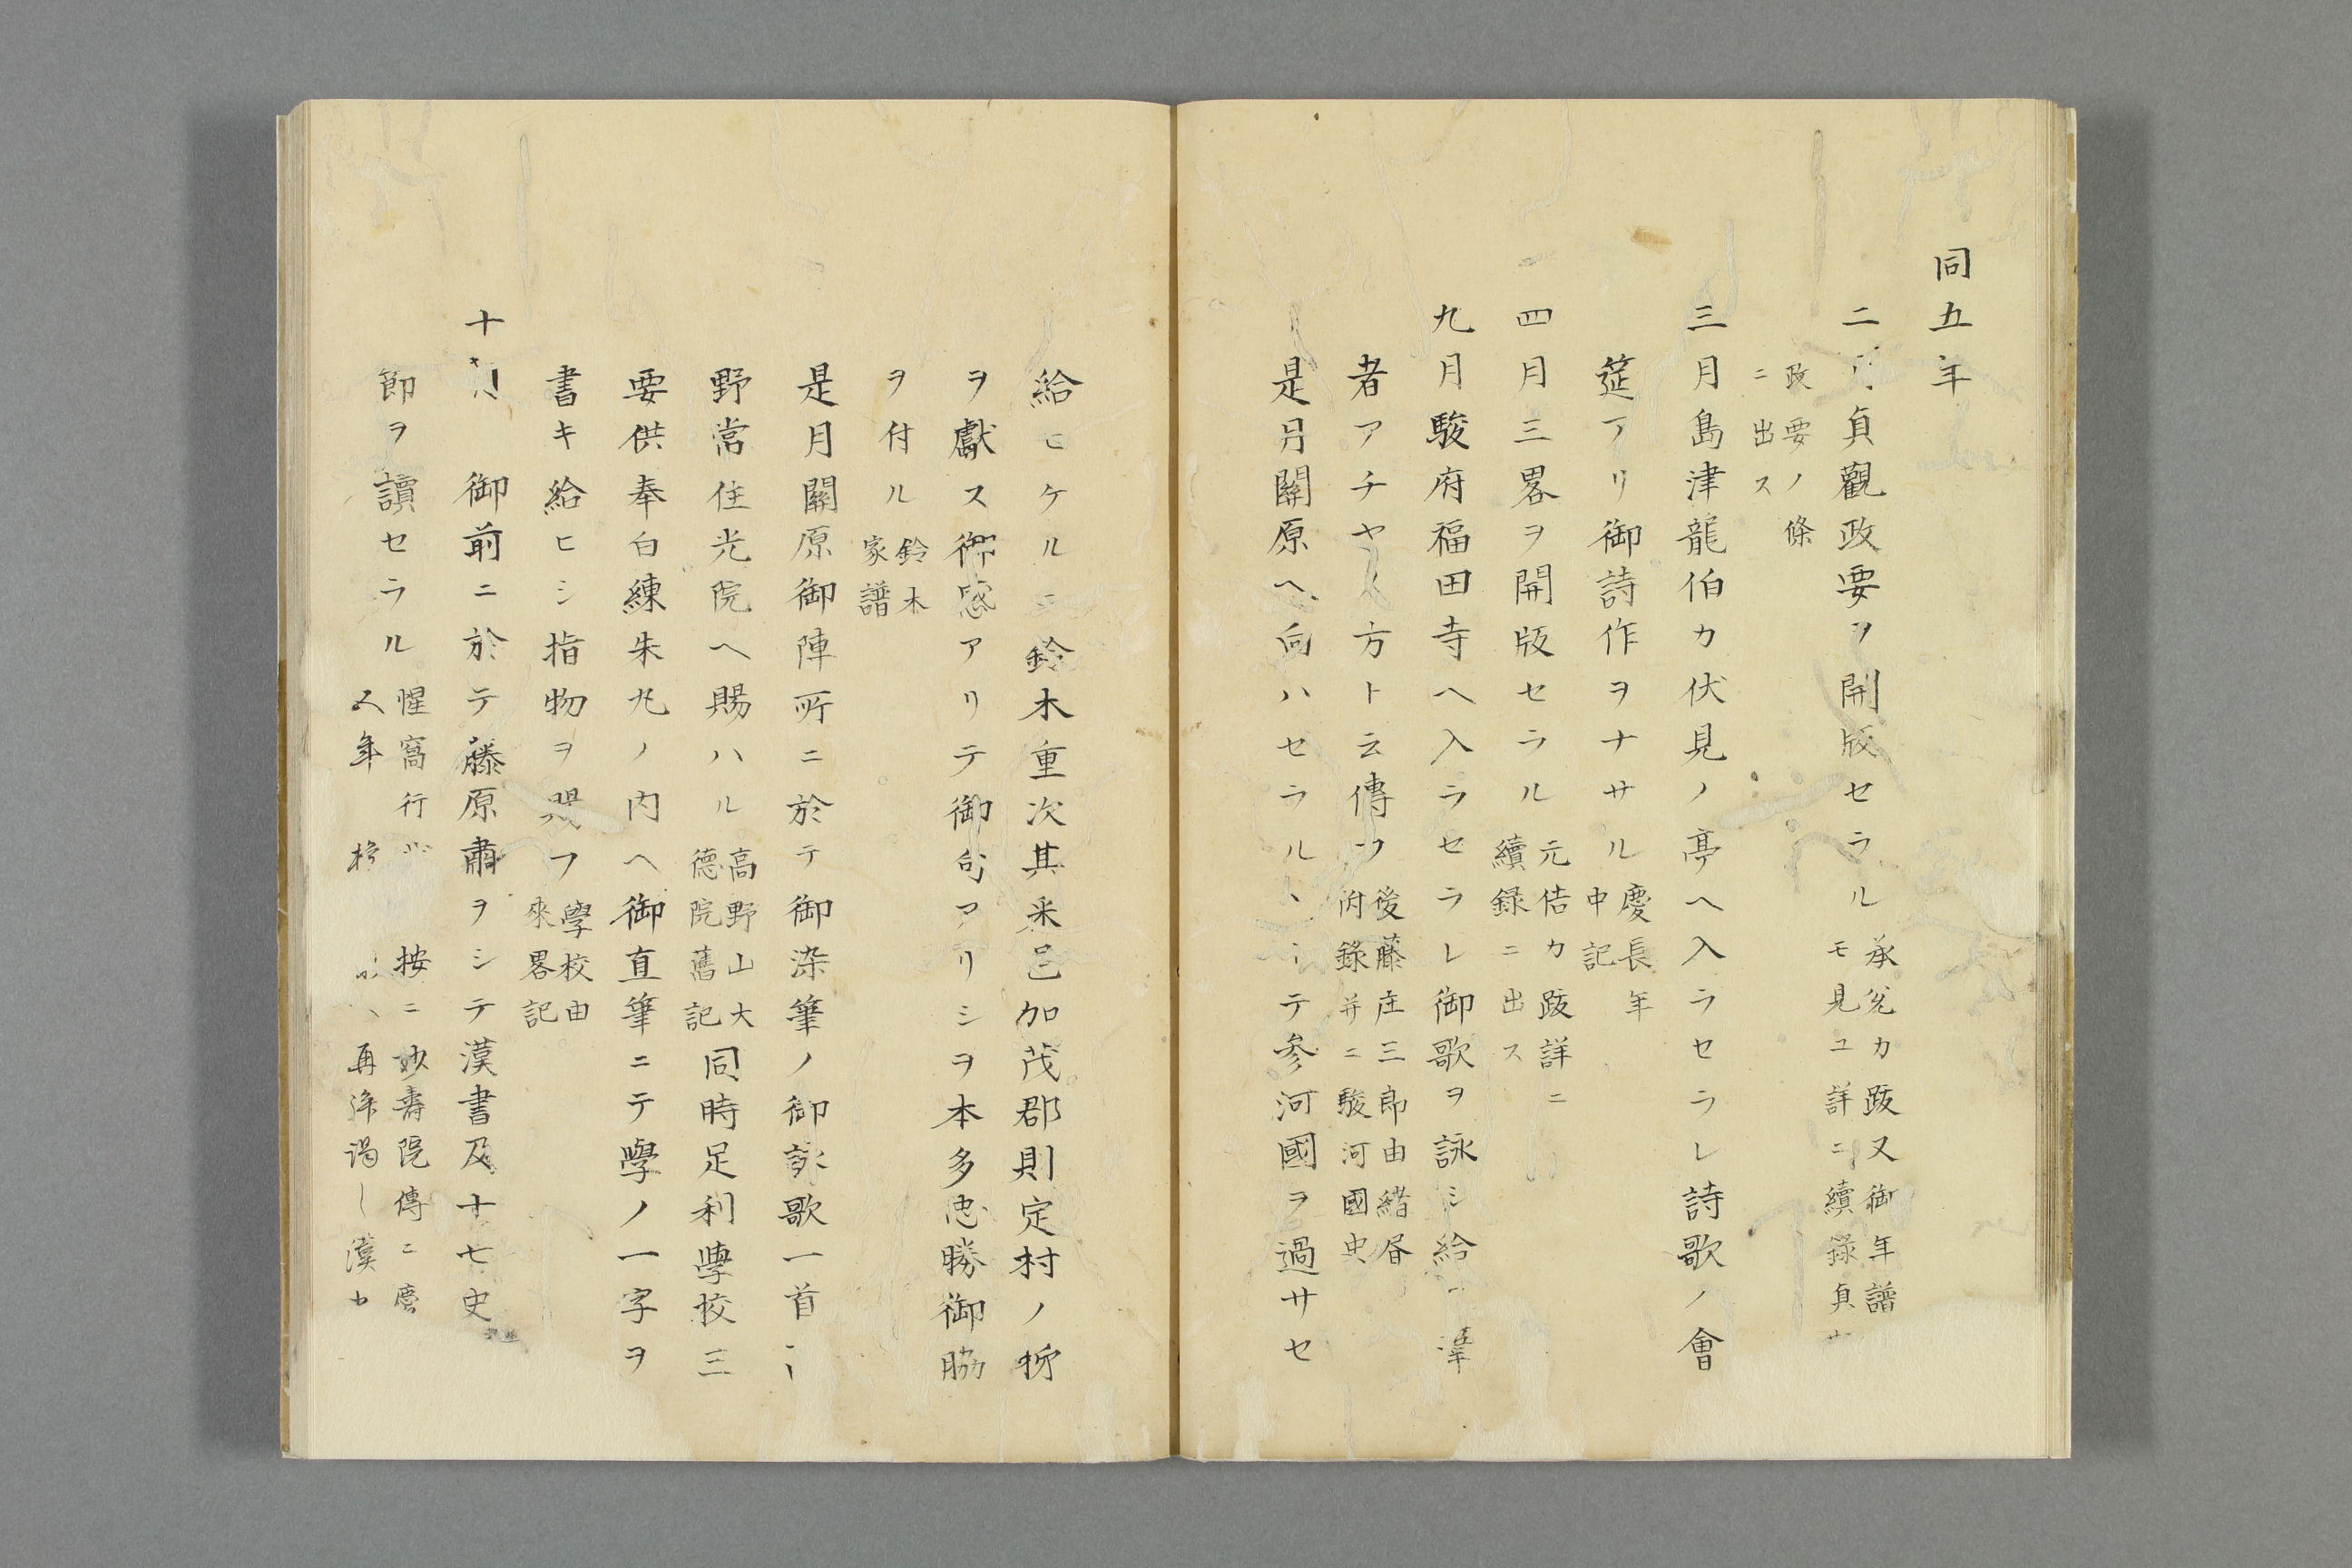 同五年
二月貞觀政要ヲ開版セラル
承兌カ跋又御年譜
モ見ユ詳ニ續錄貞
政要ノ條
ニ出ス
三月島津龍伯カ伏見ノ亭ヘ入ラセラレ詩歌ノ會
筵アリ御詩作ヲナサル
慶長年
中記
四月三畧ヲ開版セラル
元佶カ跋詳ニ
續録ニ出ス
九月駿府福田寺ヘ入ラセラレ御歌ヲ詠シ給
者アチヤノ方ト云傳フ
後藤庄三郎由緒届
附錄并ニ駿河國史
是月關原ヘ向ハセラルヽニテ参河國ヲ過サセ
給ヒケルニ鈴木重次其采邑加茂郡則定村ノ栁
ヲ獻ス御感アリテ御句アリシヲ本多忠勝御脇
ヲ付ル
鈴木
家譜
是月關原御陣所ニ於テ御染筆ノ御詠歌一首ヽ
野常住光院ヘ賜ハル
高野山大
德院舊記
同時足利學校三
要供奉白練朱丸ノ内ヘ御直筆ニテ學ノ一字ヲ
書キ給ヒシ指物ヲ賜フ
學校由
來畧記
十月御前ニ於テ藤原肅ヲシテ漢書及十七史
節ヲ讀セラル
惺窩行 按ニ妙壽院傳ニ慶
五年 再 謁 漢カ